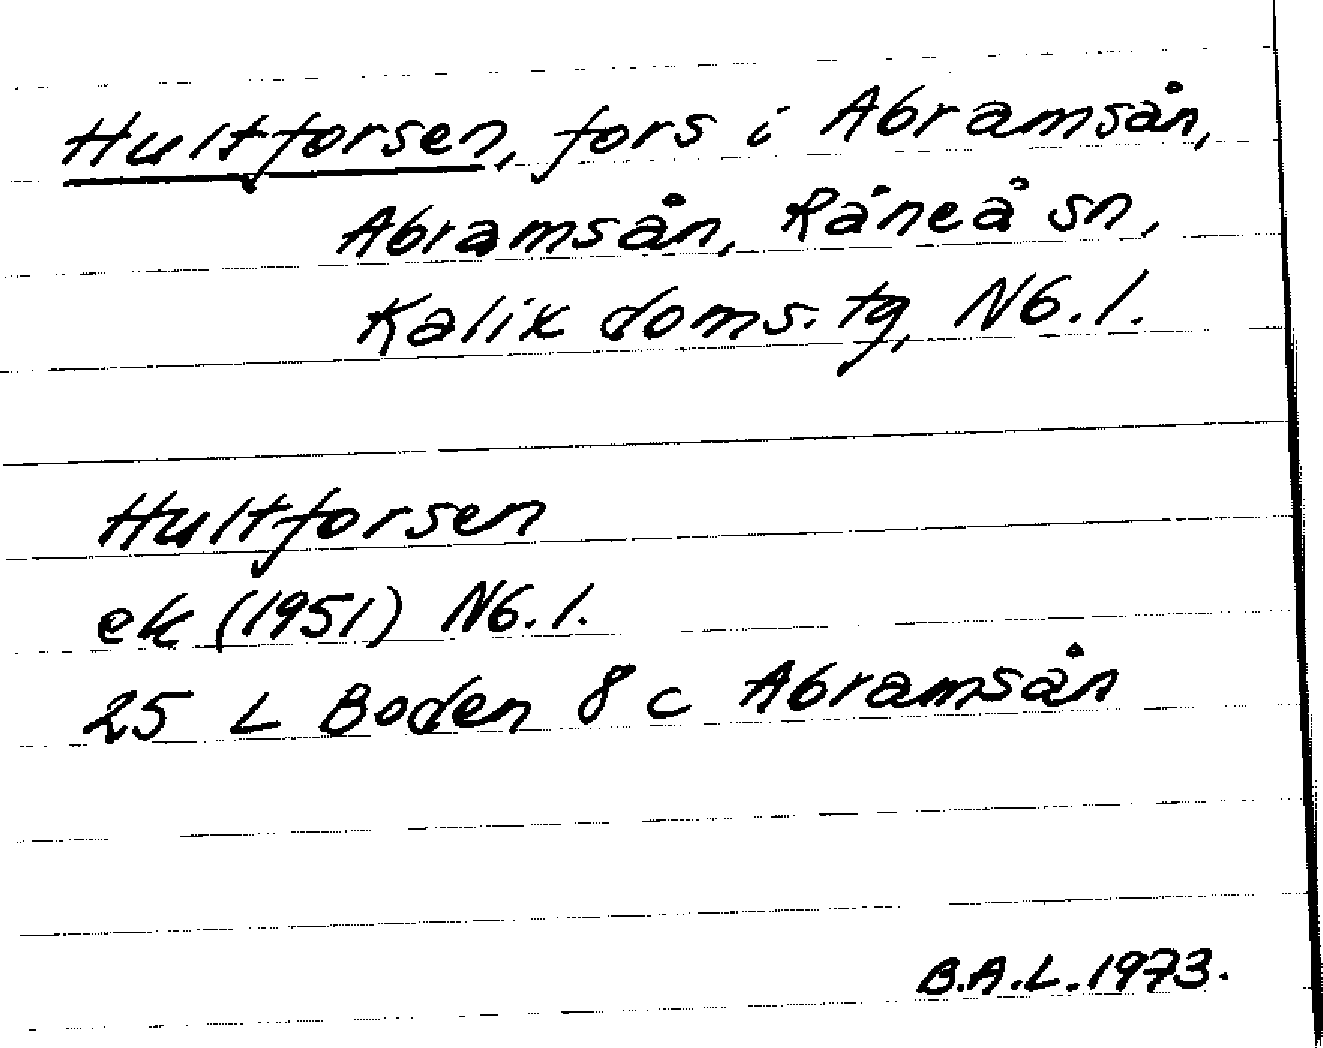 Hultforsen, fors i Abramsån,
Abramsån, Råneå sn,
Kalix doms. tg, Nb. l.
Hultforsen
ek (1951) Nb. l.
25 L Boden 8 c Abramsån
B.A.L. 1973.